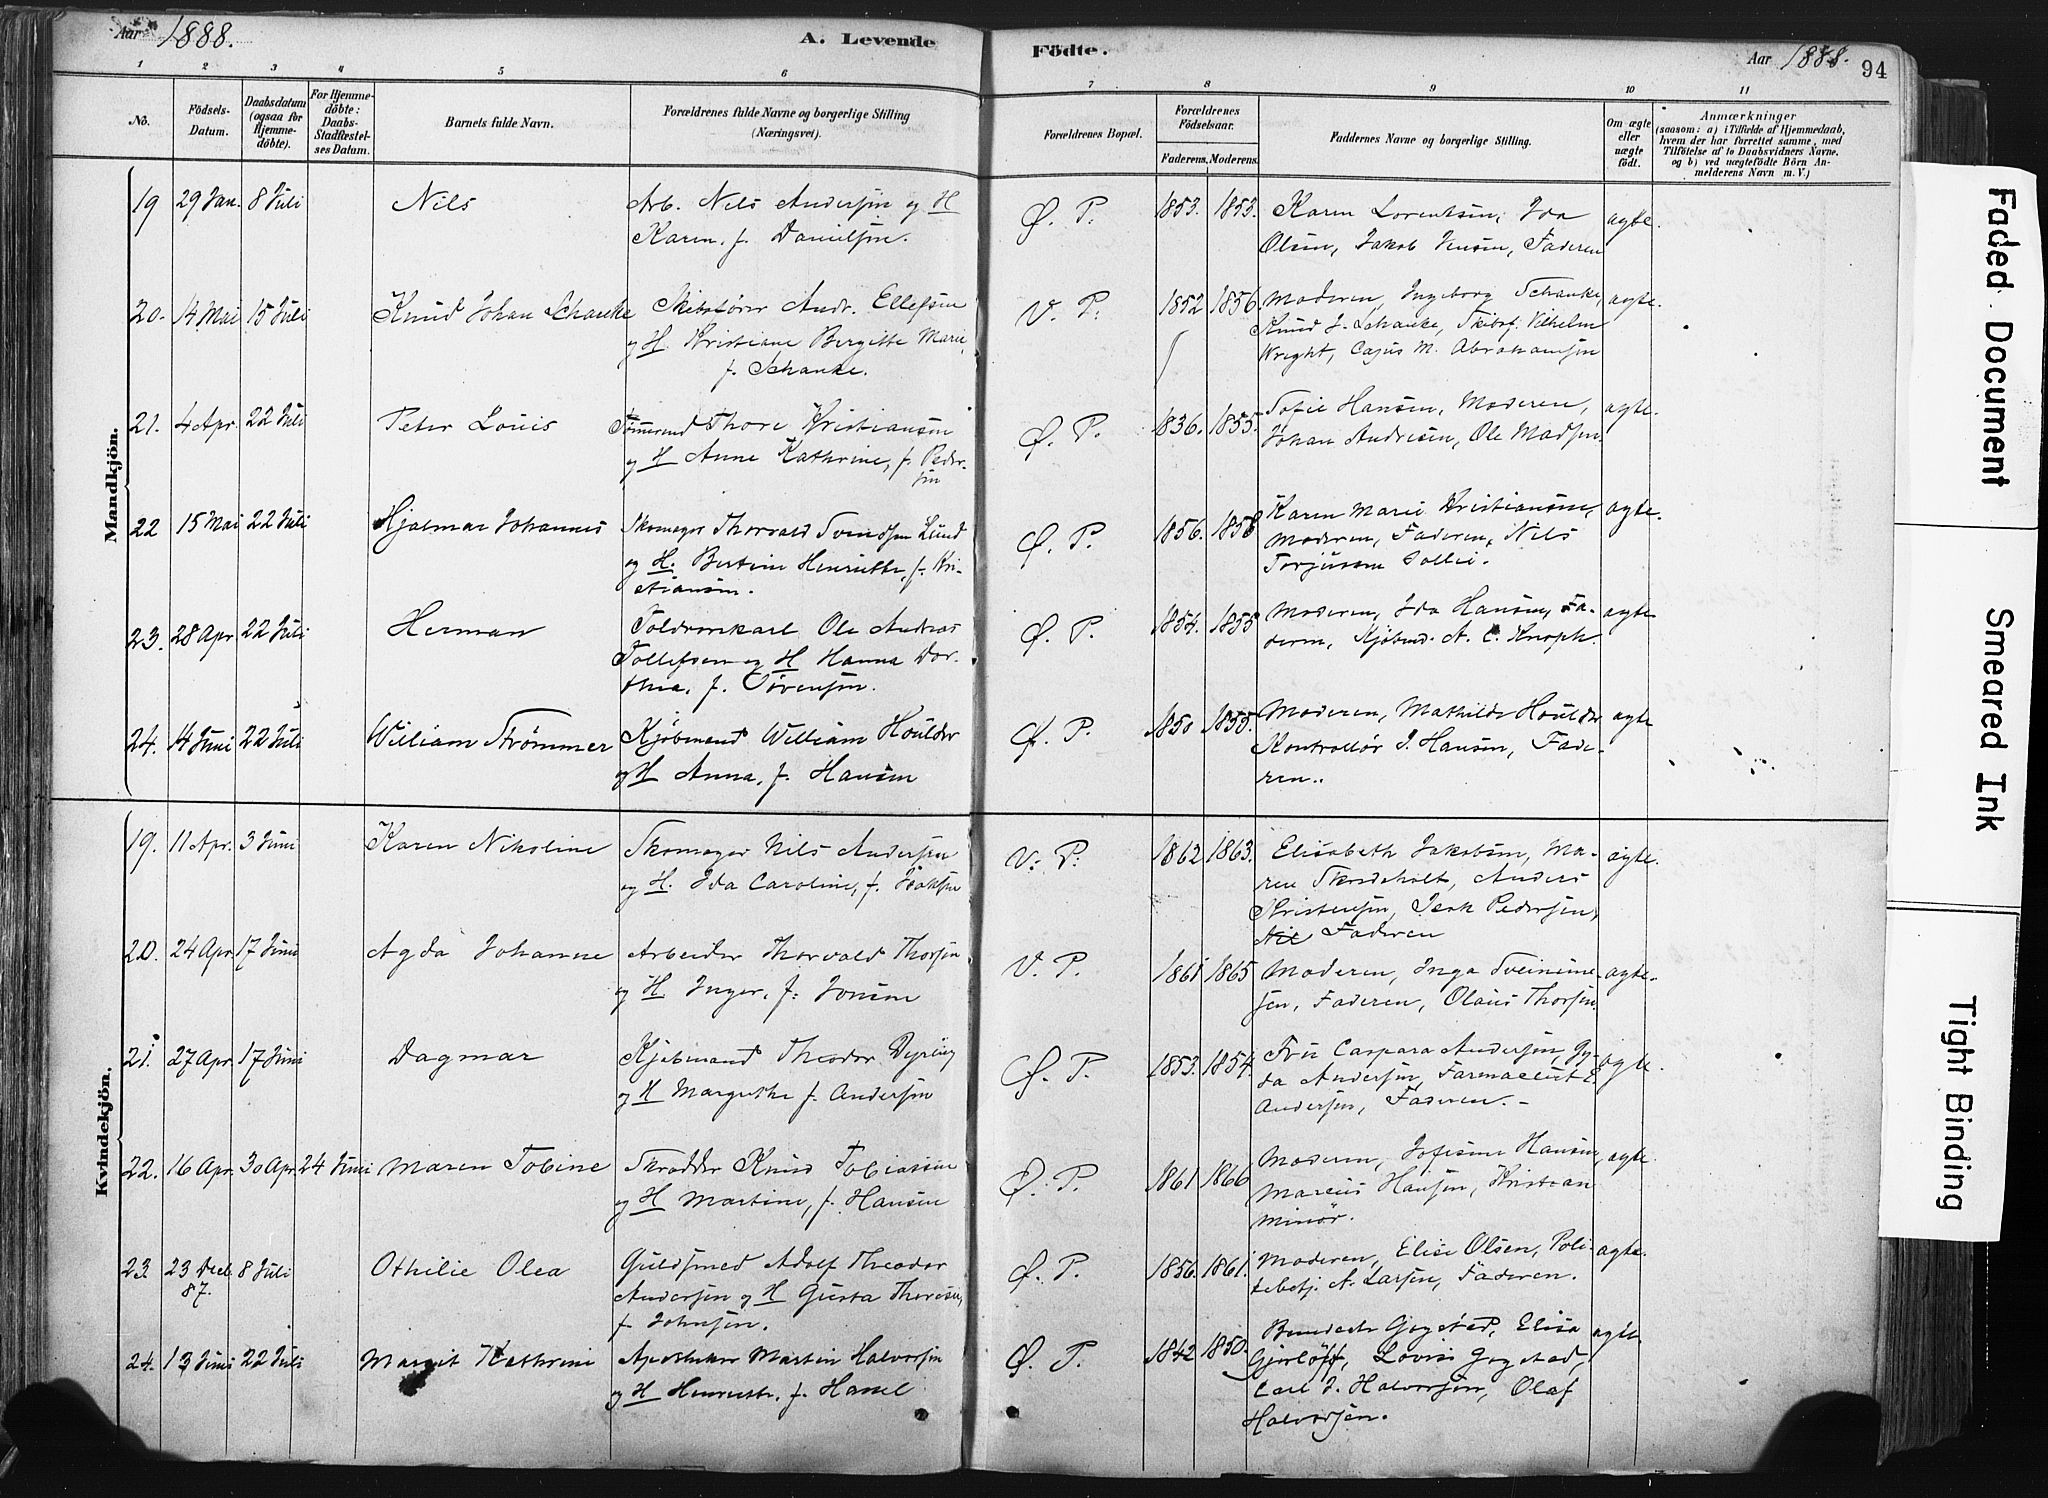 Aar 1888.
A. Levende
Födte.
Aar 1888.
94
1 2 3 4 5 6 7 8 9 10 11
No.
Födsels-
Datum.
Daabsdatum
(ogsaa for
Hjemme-
döbte).
For Hjemme-
döbte:
Daabs-
Stadfæstel-
ses Datum.
Barnets fulde Navn.
Forældrenes fulde Navne og borgerlige Stilling
(Næringsvei).
Forældrenes Bopæl.
Forældrenes
Födselsaar.
Faderens. Moderens.
Faddernes Navne og borgerlige Stilling.
Om ægte
eller
uægte
født.
Anmærkninger
(saasom: a) i Tilfælde af Hjemmedaab,
hvem der har forrettet samme, med
Tilföielse af to Daabsvidners Navne,
og b) ved uægtefödte Börn An-
melderens Navn m. V.)
Mandkjön.
19 29 Jan. 8 Juli Nils Arb. Nils Andersen og H Ø. P. 1853. 1853. Karen Lorentsen, Ida ægte.
Karen, f. Danielsen. Olsen, Jakob Jensen, Faderen
20. 14 Mai 15 Juli Knud Johan Schanke Skibsfører Andr. Ellefsen V. P. 1852 1856. Moderen, Ingeborg Schanke, ægte.
og H. Kristiane Bergitte Marie, Knud J. Schanke, Skibsf. Vilhelm
f. Schanke. Wright, Cajus M. Abrahamsen
21. 4 Apr. 22 Juli Peter Louis Tømmermd Thore Kristiansen Ø. P. 1836. 1855. Sofie Hansen, Moderen, ægte.
og H Anne Kathrine, f. Peder- Johan Andresen, Ole Madsen.
sen
22 15 Mai 22 Juli Hjalmar Johannes Skomager Thorvald Svendsen Lund Ø. P. 1856. 1858 Karen Marie Kristiansen, ægte.
og H. Bertine Henriette, f. Kri- Moderen, Faderen, Nils
stiansen. Torjusen Sollie.
23. 28 Apr 22 Juli Herman Toldrorskarl Ole Andreas Ø. P. 1854. 1855 Moderen, Ida Hansen, Fa- ægte
Tollefsen og H Hanna Dor- deren, Kjøbmd. A. C. Knoph.
thea, f. Sørensen.
24. 14 Juni 22 Juli William Strømmer Kjøbmand William Houlder Ø. P. 1850 1855. Moderen, Mathilde Houlder ægte
og H Anna, f. Hansen Kontrollør J. Hansen, Fade-
ren.
Kvindekjön.
19. 11 Apr. 3 Juni Karen Nikoline Skomager Nils Andersen V. P. 1862 1863. Elisabeth Jakobsen, Ma- ægte.
og H. Ida Caroline, f. Isaksen ren Skordeholt, Anders
Kristensen, Isak Pedersen,
Faderen
20. 24 Apr. 17 Juni Agda Johanne Arbeider Thorvald Thorsen V. P. 1861 1865 Moderen, Inga ægte.
og H Inger, f. Jonsen sen, Faderen, Olaus Thorsen.
21. 27 Apr 17 Juni Dagmar Kjøbmand Theodor Dyring Ø. P. 1853. 1854. Fru Caspara Andersen, Gy- ægte.
og H Margrethe f. Andersen da Andersen, Farmaceut E.
Andersen, Faderen.
22. 16 Apr. 30 Apr 24 Juni Maren Tobine Skrædder Knud Tobiassen Ø. P. 1861 1866 Moderen, Josefine Hansen, ægte.
og H Martine, f. Hansen Marcus Hansen, Kristian
Minör.
23. 23 Dec. 87. 8 Juli Othilie Olea Guldsmed Adolf Theodor Ø. P. 1856. 1861. Moderen, Elise Olsen, Poli- ægte.
Andersen og H Gusta Therese, tibetj. A. Larsen, Faderen.
f. Johnsen.
24. 13 Juni 22 Juli Margit Kathrine Apotheker Martin Halvorsen Ø. P. 1842 1850. Gogstad, Elisa ægte.
og H Henriette, f. Hassel Gjerløff, Lovise Gogstad,
Carl J. Halvorsen, Olaf
Halvorsen.
Faded Document
Smeared Ink
Tight Binding